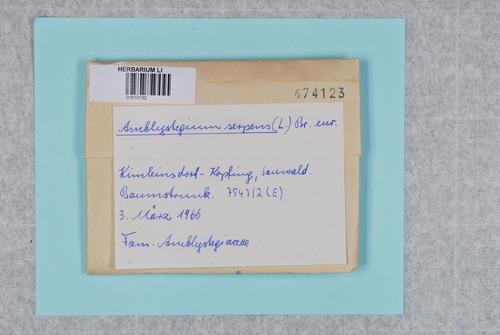 HERBARIUM LI
674123
Amblystegium serpens (L.) Br. eur.
Kopfing, Sauwald.
Baumstrunk. 7547/2 (E)
3. März 1966
Fam. Amblystegiaceae